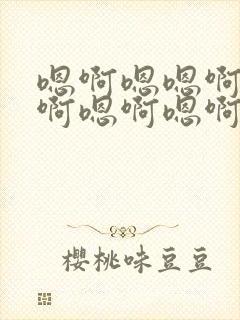 嗯啊嗯嗯啊
啊嗯啊嗯啊
櫻桃味豆豆